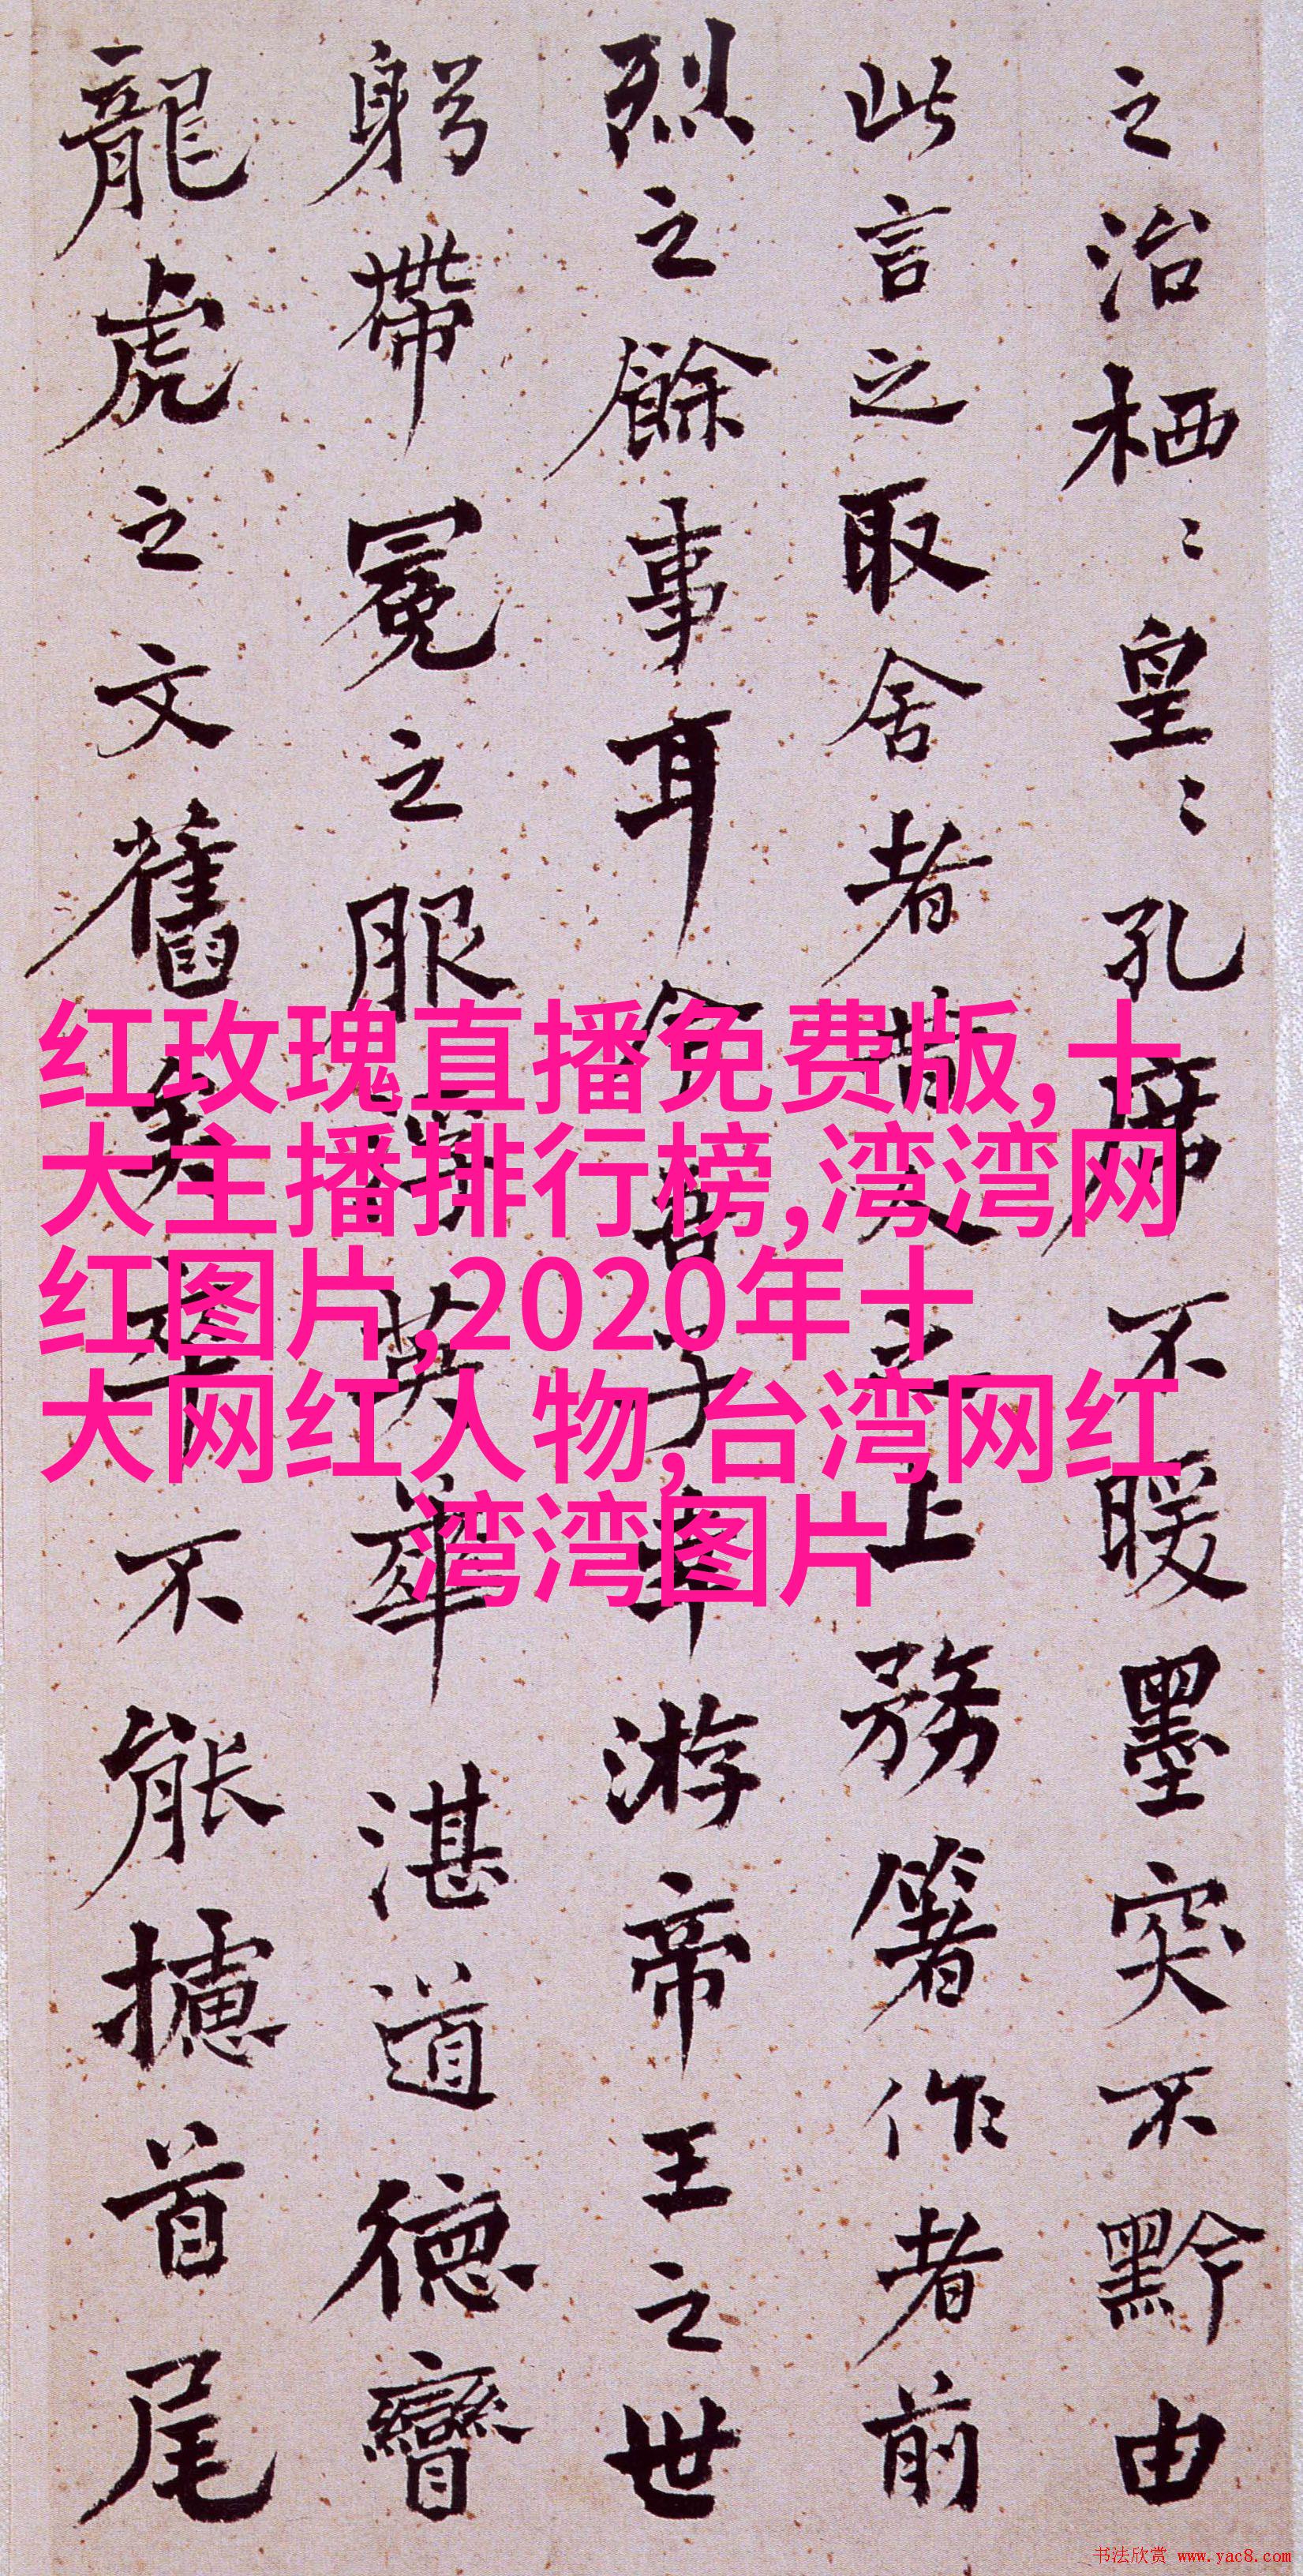 之治栖〻皇〻孔席不暖墨突不黔由
此言之取舍者昔人之上務箸作者前
烈之餘事耳今吾子幸游帝王之世
躬帶冕之服浮英華湛道德矕
龍虎之文舊矣卒不能攄首尾
红玫瑰直播免费版,十
大主播排行榜,湾湾网
红图片,2020年十
大网红人物,台湾网红
湾湾图片
书法欣赏 www.yac8.com